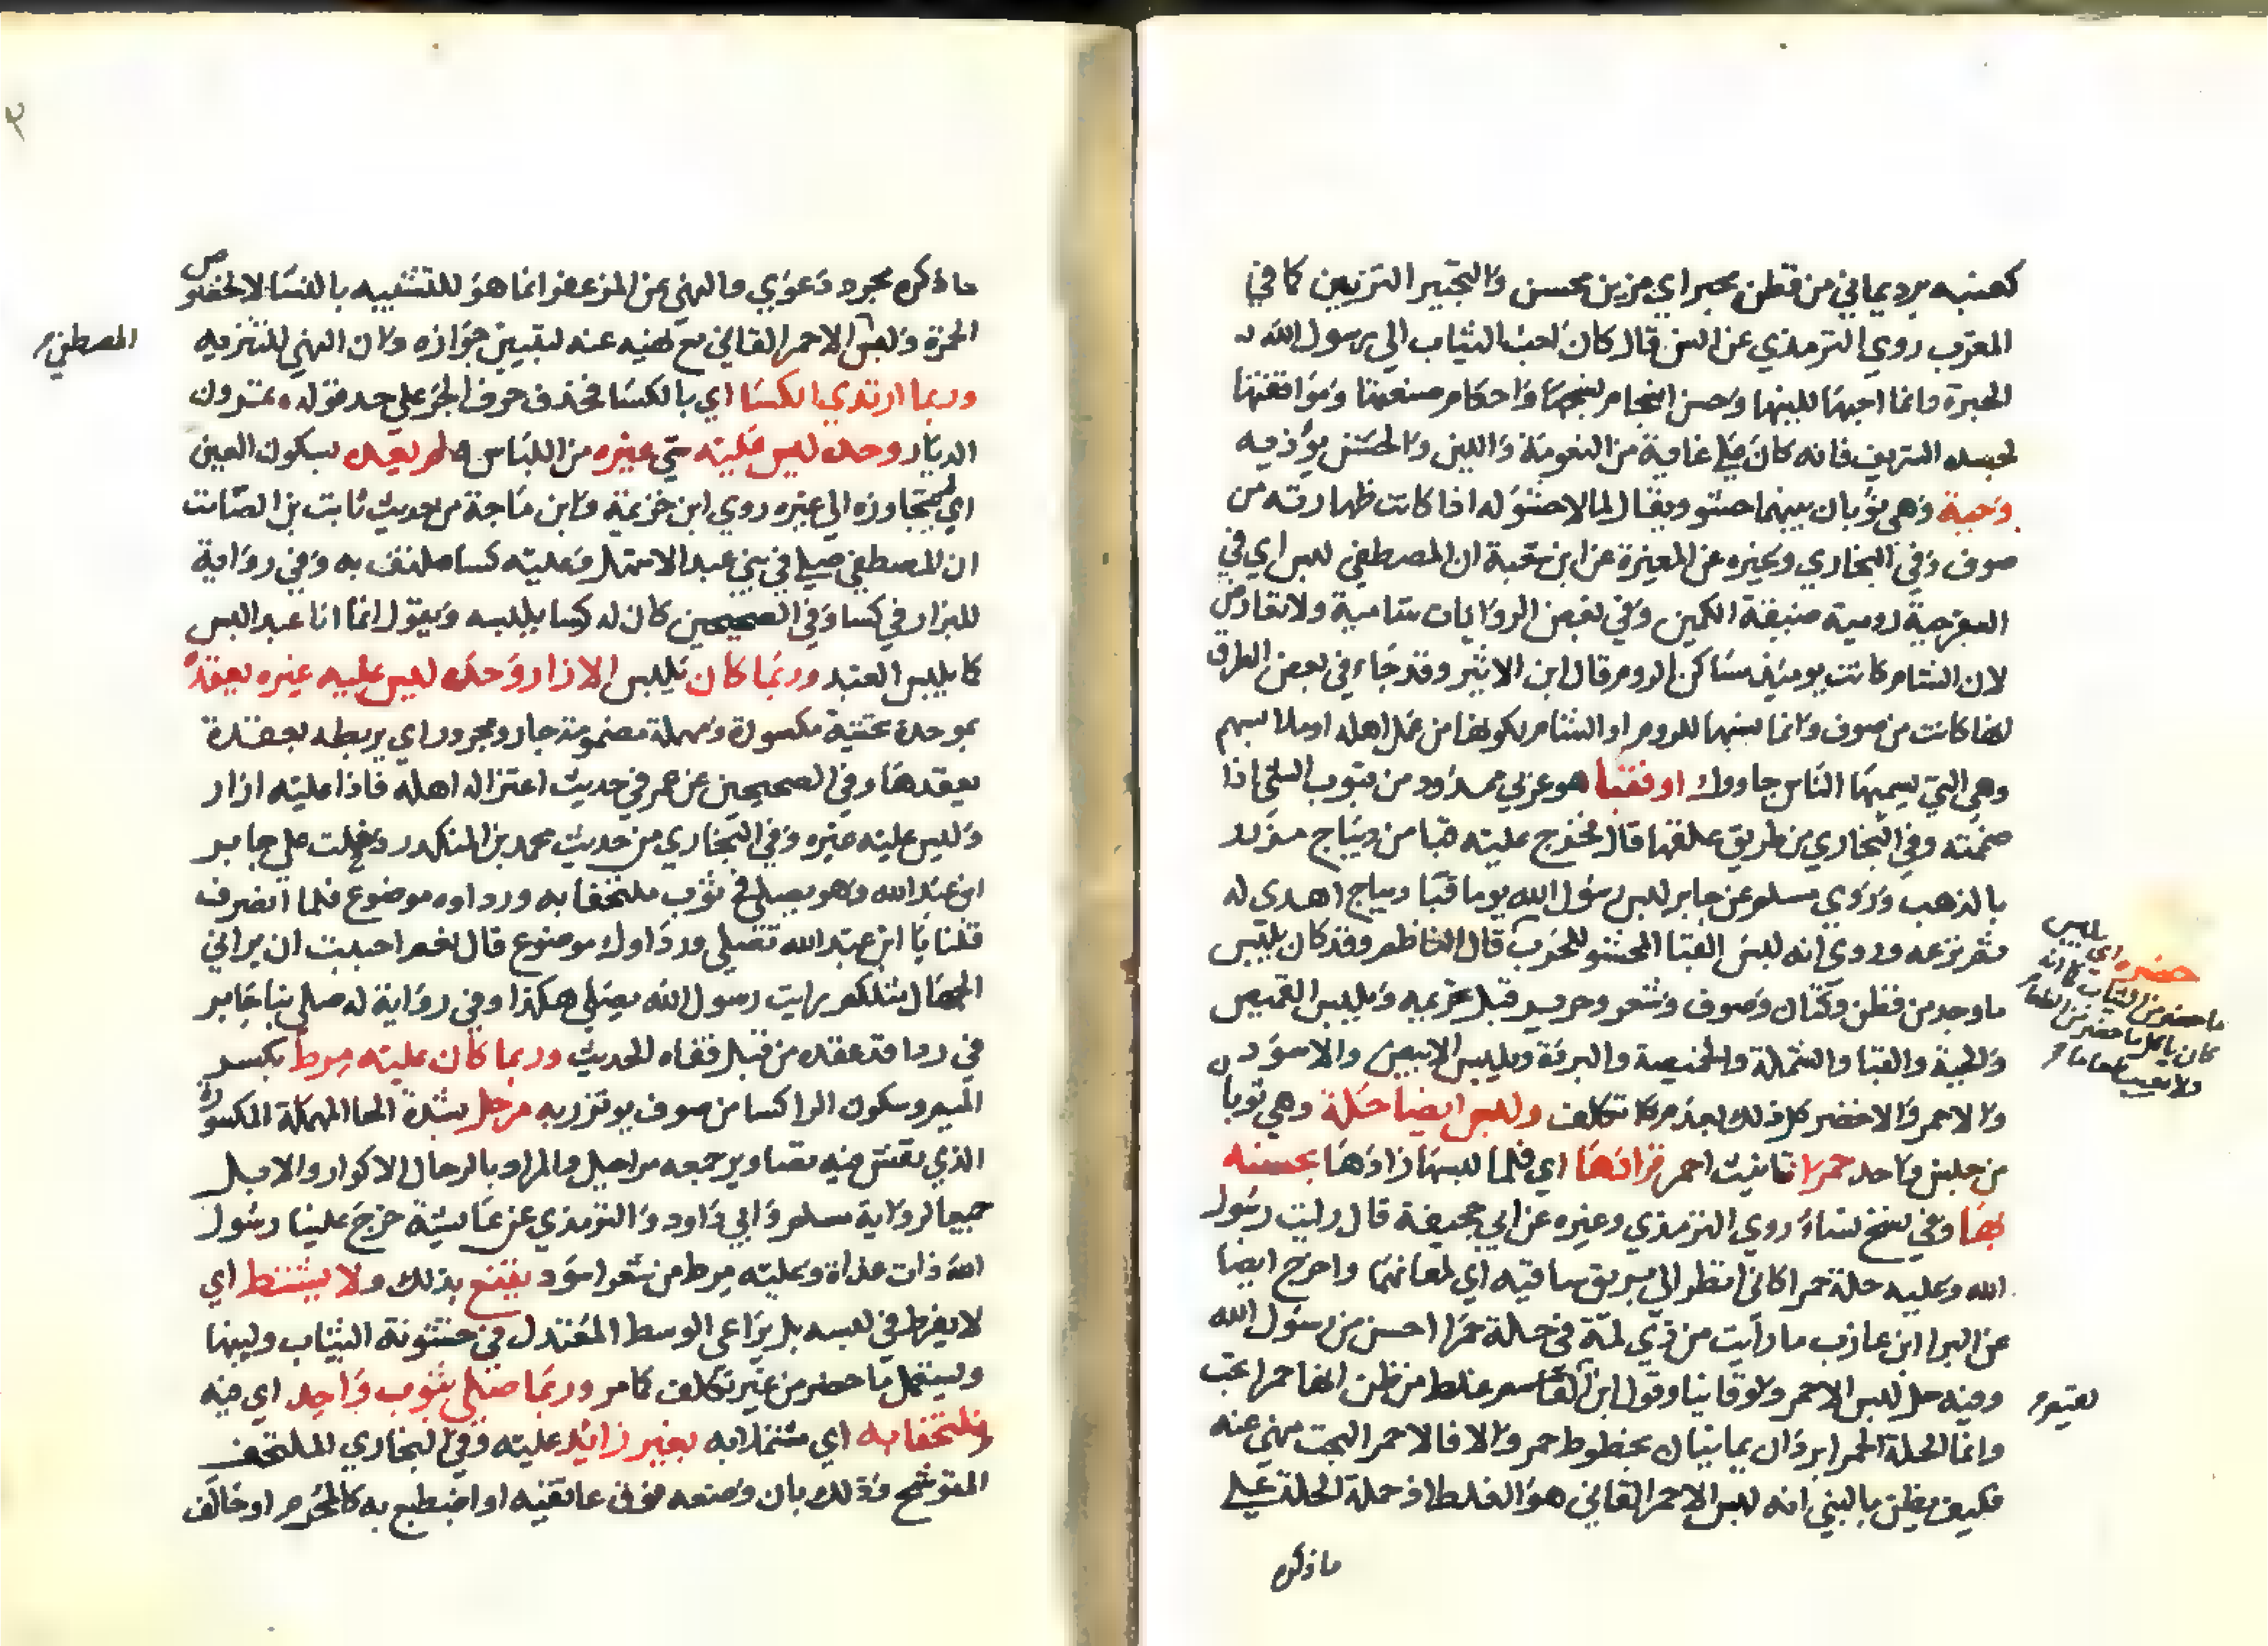 كعنبه برد يماني من قطن محبر اي مزين محسن والتحبير التزيين كما في
المغرب روي الترمذي عن انس قال كان احب الثياب الي رسول الله
الحبرة وانما احبها للينها وحسن انسجام نسجها واحكام صنعتها وموافقتها
لجسده الشريف فانه كان علي غاية من النعومة واللين والخشن يؤذيه
وجبة وهي ثوبان بينهما حشو ويقال لما لا حشو له اذا كانت ظهارته من
صوف وفي البخاري وغيره عن المغيرة عن ابن شعبة ان المصطفي لبس اي في
السفر جبة رومية ضيقة الكمين وفي بعض الروايات شامية ولا تعارض
لان الشام كانت يومئذ مساكن الروم قال ابن الاثير وقد جاء في بعض الطرق
انها كانت من صوف وانما نسبها للروم او الشام لكونها من عمل اهله او ملابسهم
وهي التي يسميها الناس جاووك او قبا هو عربي ممدود من قبوت الشي اذا
ضممته وفي البخاري من طريق علقها قال فخرج عليه قبا من ديباج مزرد
بالذهب وروي مسلم عن جابر لبس رسول الله يوما قبا ديباج اهدي له
ثم نزعه وروي انه لبس القبا المحشو للحرب قال الناظم وقد كان يلبس
ما وجد من قطن وكتان وصوف وشعر وحرير قبل تحريمه ويلبس القميص
والجبة والقبا والشملة والخميصة والبردة ويلبس الابيض والاسود
والاحمر والاخضر كل ذلك بعدم تكلف ولبس ايضا حلة وهي ثوبان
من جنس واحد حمرا تانيث احمر فزانها اي فلما لبسها زادها بحسنه
بها وفي نسخ نساء روي الترمذي وغيره عن ابي جحيفة قال رايت رسول
الله وعليه حلة حمرا كاني انظر الي بريق ساقيه اي لمعانهما واخرج ايضا
عن البرا ابن عازب ما رايت من ذي لمة في حلة حمرا احسن من رسول الله
وفيه حل لبس الاحمر ولو قانيا وقول ابن القيم غلط من ظن انها حمرا بحت
وانما الحلة الحمرا بردان يمانيان بخطوط حمر والا فالاحمر البحت منهي عنه
فكيف يظن بالنبي انه لبس الاحمر القاني هو الغلط اذ حمله الحلة علي
ما ذكره
حضره اي يلبس
ما حضر من الثياب كما انه
كان ياكل ما حضر من الطعام
ولا يعيب طعاما
لقيم
ما ذكره مجرد دعوي والنهي عن المزعفر انما هو للتشبيه بالنسا لا لخصوص
الحمرة ولبس الاحمر القاني مع نهيه عنه لتبيين جوازه ولان النهي للتنزيه
المصطفي
وربما ارتدي الكسا اي بالكسا فحذف حرف الجر علي حد قوله تمرون
الديار وحده ليس عليه شي غيره من اللباس ولم يعد بسكون العين
اي يتجاوزه الي غيره روي ابن خزيمة وابن ماجة من حديث ثابت بن الصامت
ان المصطفي صلي في بني عبد الاشهل وعليه كسا ملتف به وفي رواية
للبزار في كسا وفي الصحيحين كان له كسا يلبسه ويقول انما انا عبد البس
كما يلبس العبد وربما كان يلبس الازار وحده ليس عليه غيره بعقدة
بموحدة تحتية مكسورة ومهملة مضمومة جار ومجرور اي يربطه بعقدة
يعقدها وفي الصحيحين عن عمر في حديث اعتزاله اهله فاذا عليه ازار
وليس عليه غيره وفي البخاري من حديث محمد بن المنكدر دخلت علي جابر
ابن عبد الله وهو يصلي في ثوب ملتحفا به ورداوه موضوع فلما انصرف
قلنا يا ابن عبد الله تصلي ورداوك موضوع قال نعم احببت ان يراني
الجهال مثلكم رايت رسول الله يصلي هكذا وفي رواية له صلي بنا جابر
في ردا قد عقده من قبل قفاه الحديث وربما كان عليه مرط بكسر
الميم وسكون الرا كسا من صوف يوتزر به مرحل بشدة الحا المهملة المكسورة
الذي نقش فيه تصاوير جمعه مراحيل والمراد بالرحال الاكوار والابل
جميعا لرواية مسلم وابي داود والترمذي عن عايشة خرج علينا رسول
الله ذات غداة وعليه مرط من شعر اسود يقنع بذلك ولا يشتط اي
لا يفرط في لبسه بل يراعي الوسط المعتدل في خشونة الثياب ولينها
ويستعمل ما حضر من غير تكلف كما مر وربما صلي بثوب واحد اي فيه
وملتحفا به اي مشتملا به بغير زائد عليه وفي البخاري الملتحف
المتوشح وذلك بان وضعه فوق عاتقيه او اضطبع به كالمحرم او خالف